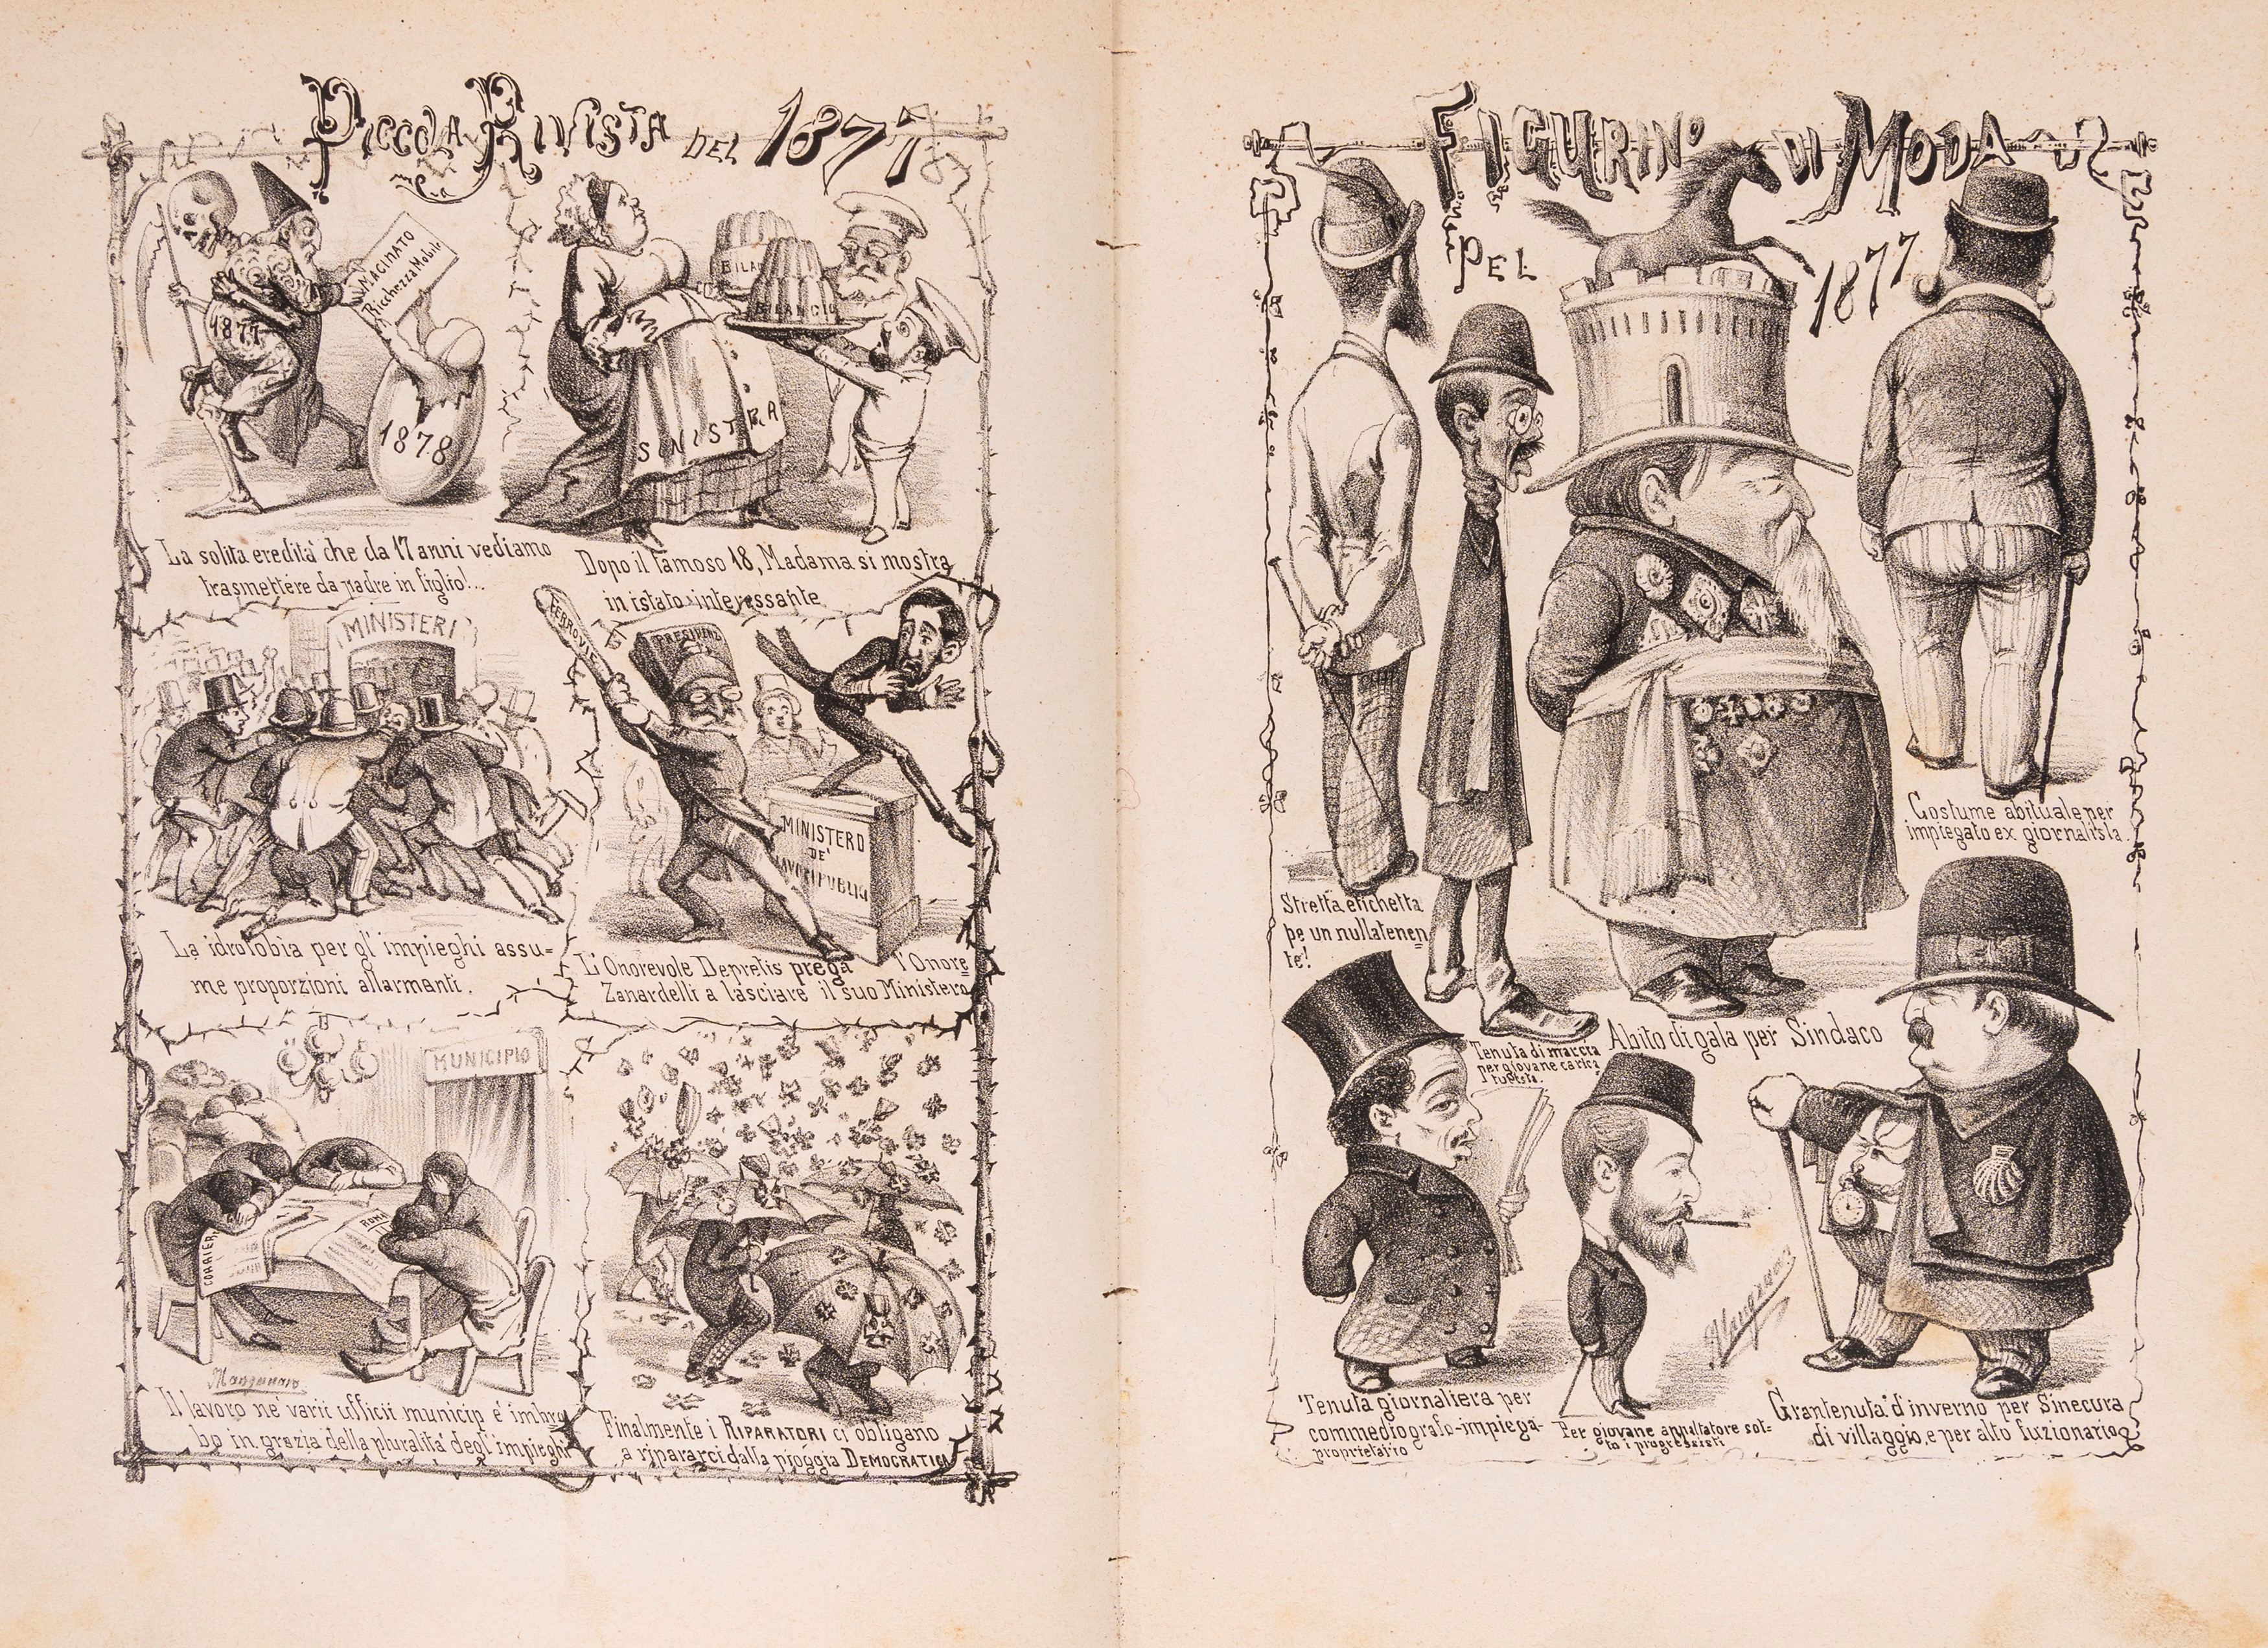 PICCOLA RIVISTA DEL 1877
MACINATO
Ricchezza Mobile
1877
1878
BILAN
BILANCIO
SINISTRA
La solita eredità che da 17 anni vediamo
trasmettere da padre in figlio!...
Dopo il famoso 18, Madama si mostra
in istato interessante
MINISTERI
FERROVIE
PRESIDENZ
MINISTERO
DE'
LAVORI PUBLICI
La idrofobia per gl'impieghi assu=
me proporzioni allarmanti.
L'Onorevole Depretis prega l'Onore=
Zanardelli a lasciare il suo Ministero
MUNICIPIO
CORRIER
ROMA
Manganaro
Il lavoro ne' varii ufficii municip è imbro
lio in grazia della pluralità degl'impieghi
Finalmente i RIPARATORI ci obligano
a ripararci dalla pioggia DEMOCRATICA
FIGURINO DI MODA
PEL 1877
Costume abituale per
impiegato ex giornalista.
Stretta etichetta
pe un nullatenen
te!
Tenuta di marcia
per giovane carica
turista.
Abito di gala per Sindaco
Manganaro
Tenuta giornaliera per
commediografo-impiega-
proprietario
Per giovane appaltatore sot-
to i progressisti
Grantenuta d'inverno per Sinecura
di villaggio, e per alto fuzionario